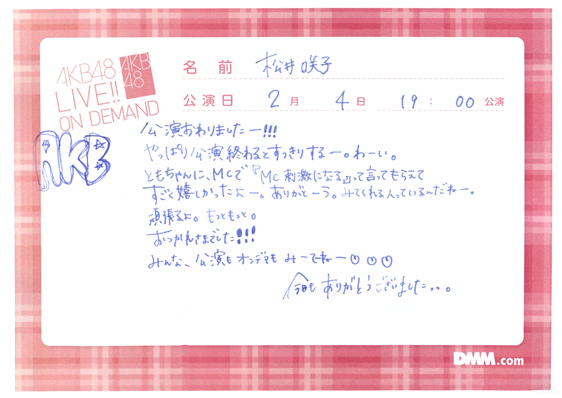 AKB48
LIVE!!
ON DEMAND
AKB
48
名前 松井咲子
公演日 2月 4日 19:00 公演
AKB
公演おわりましたー!!!
やっぱり公演終わるとすっきりするー。わーい。
ともちゃんに、MCで『MC刺激になる』って言ってもらえて
すごく嬉しかったよー。ありがとーう。みてくれる人っているんだねー。
頑張るよ。もっともっと。
おつかれさまでした!!!
みんな、公演もオンデマもみーてねー
今日もありがとうございました...。
DMM.com